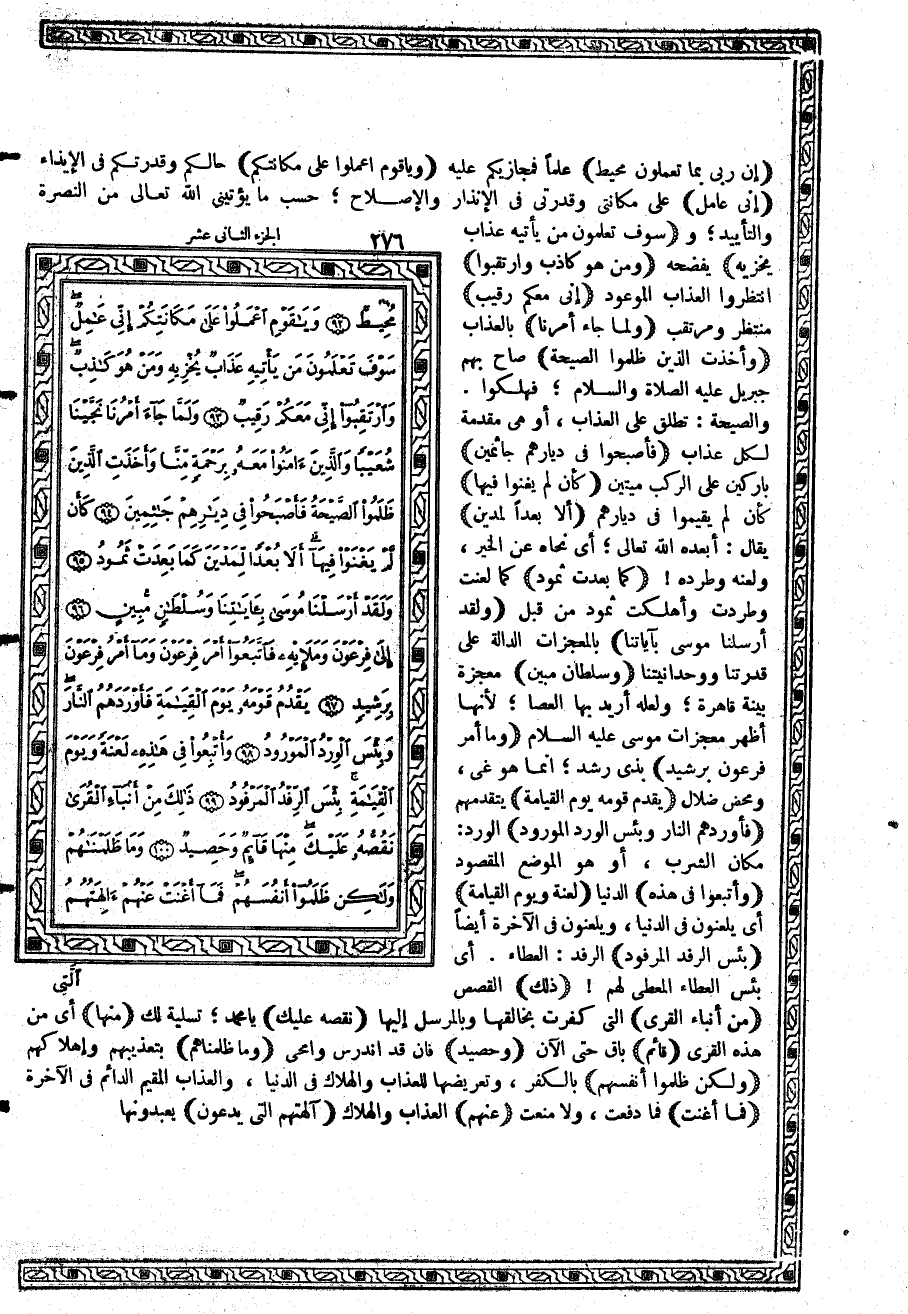 (إن ربى بما تعملون محيط) علماً فمجازيكم عليه (وياقوم اعملوا على مكانتكم) حالكم وقدرتكم فى الإيذاء
(إنى عامل) على مكانتى وقدرتى فى الإنذار والإصلاح ؛ حسب ما يؤتينى الله تعالى من النصرة
والتأييد ؛ و (سوف تعلمون من يأتيه عذاب
يخزيه) يفضحه (ومن هو كاذب وارتقبوا)
انتظروا العذاب الموعود (إنى معكم رقيب)
منتظر ومرتقب (ولما جاء أمرنا) بالعذاب
(وأخذت الذين ظلموا الصيحة) صاح بهم
جبريل عليه الصلاة والسلام ؛ فهلكوا .
والصيحة : تطلق على العذاب ، أو هى مقدمة
لكل عذاب (فأصبحوا فى ديارهم جاثمين)
باركين على الركب ميتين (كأن لم يغنوا فيها)
كأن لم يقيموا فى ديارهم (ألا بعداً لمدين)
يقال : أبعده الله تعالى ؛ أى نحاه عن الخير ،
ولعنه وطرده ! (كما بعدت ثمود) كما لعنت
وطردت وأهلكت ثمود من قبل (ولقد
أرسلنا موسى بآياتنا) بالمعجزات الدالة على
قدرتنا ووحدانيتنا (وسلطان مبين) معجزة
بينة قاهرة ؛ ولعله أريد بها العصا ؛ لأنها
أظهر معجزات موسى عليه السلام (وما أمر
فرعون برشيد) بذى رشد ؛ انما هو غى ،
ومحض ضلال (يقدم قومه يوم القيامة) يتقدمهم
(فأوردهم النار وبئس الورد المورود) الورد:
مكان الشرب ، أو هو الموضع المقصود
(وأتبعوا فى هذه) الدنيا (لعنة ويوم القيامة)
أى يلعنون فى الدنيا ، ويلعنون فى الآخرة أيضاً
(بئس الرفد المرفود) الرفد : العطاء . أى
بئس العطاء المعطى لهم ! (ذلك) القصص
الجزء الثانى عشر ٢٧٦
مُحِيطٌ ٩٢ وَيَٰقَوْمِ ٱعْمَلُوا۟ عَلَىٰ مَكَانَتِكُمْ إِنِّى عَٰمِلٌ
سَوْفَ تَعْلَمُونَ مَن يَأْتِيهِ عَذَابٌ يُخْزِيهِ وَمَنْ هُوَ كَٰذِبٌ
وَٱرْتَقِبُوٓا۟ إِنِّى مَعَكُمْ رَقِيبٌ ٩٣ وَلَمَّا جَآءَ أَمْرُنَا نَجَّيْنَا
شُعَيْبًا وَٱلَّذِينَ ءَامَنُوا۟ مَعَهُۥ بِرَحْمَةٍ مِّنَّا وَأَخَذَتِ ٱلَّذِينَ
ظَلَمُوا۟ ٱلصَّيْحَةُ فَأَصْبَحُوا۟ فِى دِيَٰرِهِمْ جَٰثِمِينَ ٩٤ كَأَن
لَّمْ يَغْنَوْا۟ فِيهَآ أَلَا بُعْدًا لِّمَدْيَنَ كَمَا بَعِدَتْ ثَمُودُ ٩٥
وَلَقَدْ أَرْسَلْنَا مُوسَىٰ بِـَٔايَٰتِنَا وَسُلْطَٰنٍ مُّبِينٍ ٩٦
إِلَىٰ فِرْعَوْنَ وَمَلَإِي۟هِۦ فَٱتَّبَعُوٓا۟ أَمْرَ فِرْعَوْنَ وَمَآ أَمْرُ فِرْعَوْنَ
بِرَشِيدٍ ٩٧ يَقْدُمُ قَوْمَهُۥ يَوْمَ ٱلْقِيَٰمَةِ فَأَوْرَدَهُمُ ٱلنَّارَ
وَبِئْسَ ٱلْوِرْدُ ٱلْمَوْرُودُ ٩٨ وَأُتْبِعُوا۟ فِى هَٰذِهِۦ لَعْنَةً وَيَوْمَ
ٱلْقِيَٰمَةِ بِئْسَ ٱلرِّفْدُ ٱلْمَرْفُودُ ٩٩ ذَٰلِكَ مِنْ أَنۢبَآءِ ٱلْقُرَىٰ
نَقُصُّهُۥ عَلَيْكَ مِنْهَا قَآئِمٌ وَحَصِيدٌ ١٠٠ وَمَا ظَلَمْنَٰهُمْ
وَلَٰكِن ظَلَمُوٓا۟ أَنفُسَهُمْ فَمَآ أَغْنَتْ عَنْهُمْ ءَالِهَتُهُمُ
ٱلَّتِى
(من أنباء القرى) التى كفرت بخالقها وبالمرسل إليها (نقصه عليك) يامحمد ؛ تسلية لك (منها) أى من
هذه القرى (قائم) باق حتى الآن (وحصيد) فان قد اندرس وامحى (وما ظلمناهم) بتعذيبهم وإهلاكهم
(ولكن ظلموا أنفسهم) بالكفر ، وتعريضها للعذاب والهلاك فى الدنيا ، والعذاب المقيم الدائم فى الآخرة
(فما أغنت) فما دفعت ، ولا منعت (عنهم) العذاب والهلاك (آلهتهم التى يدعون) يعبدونها